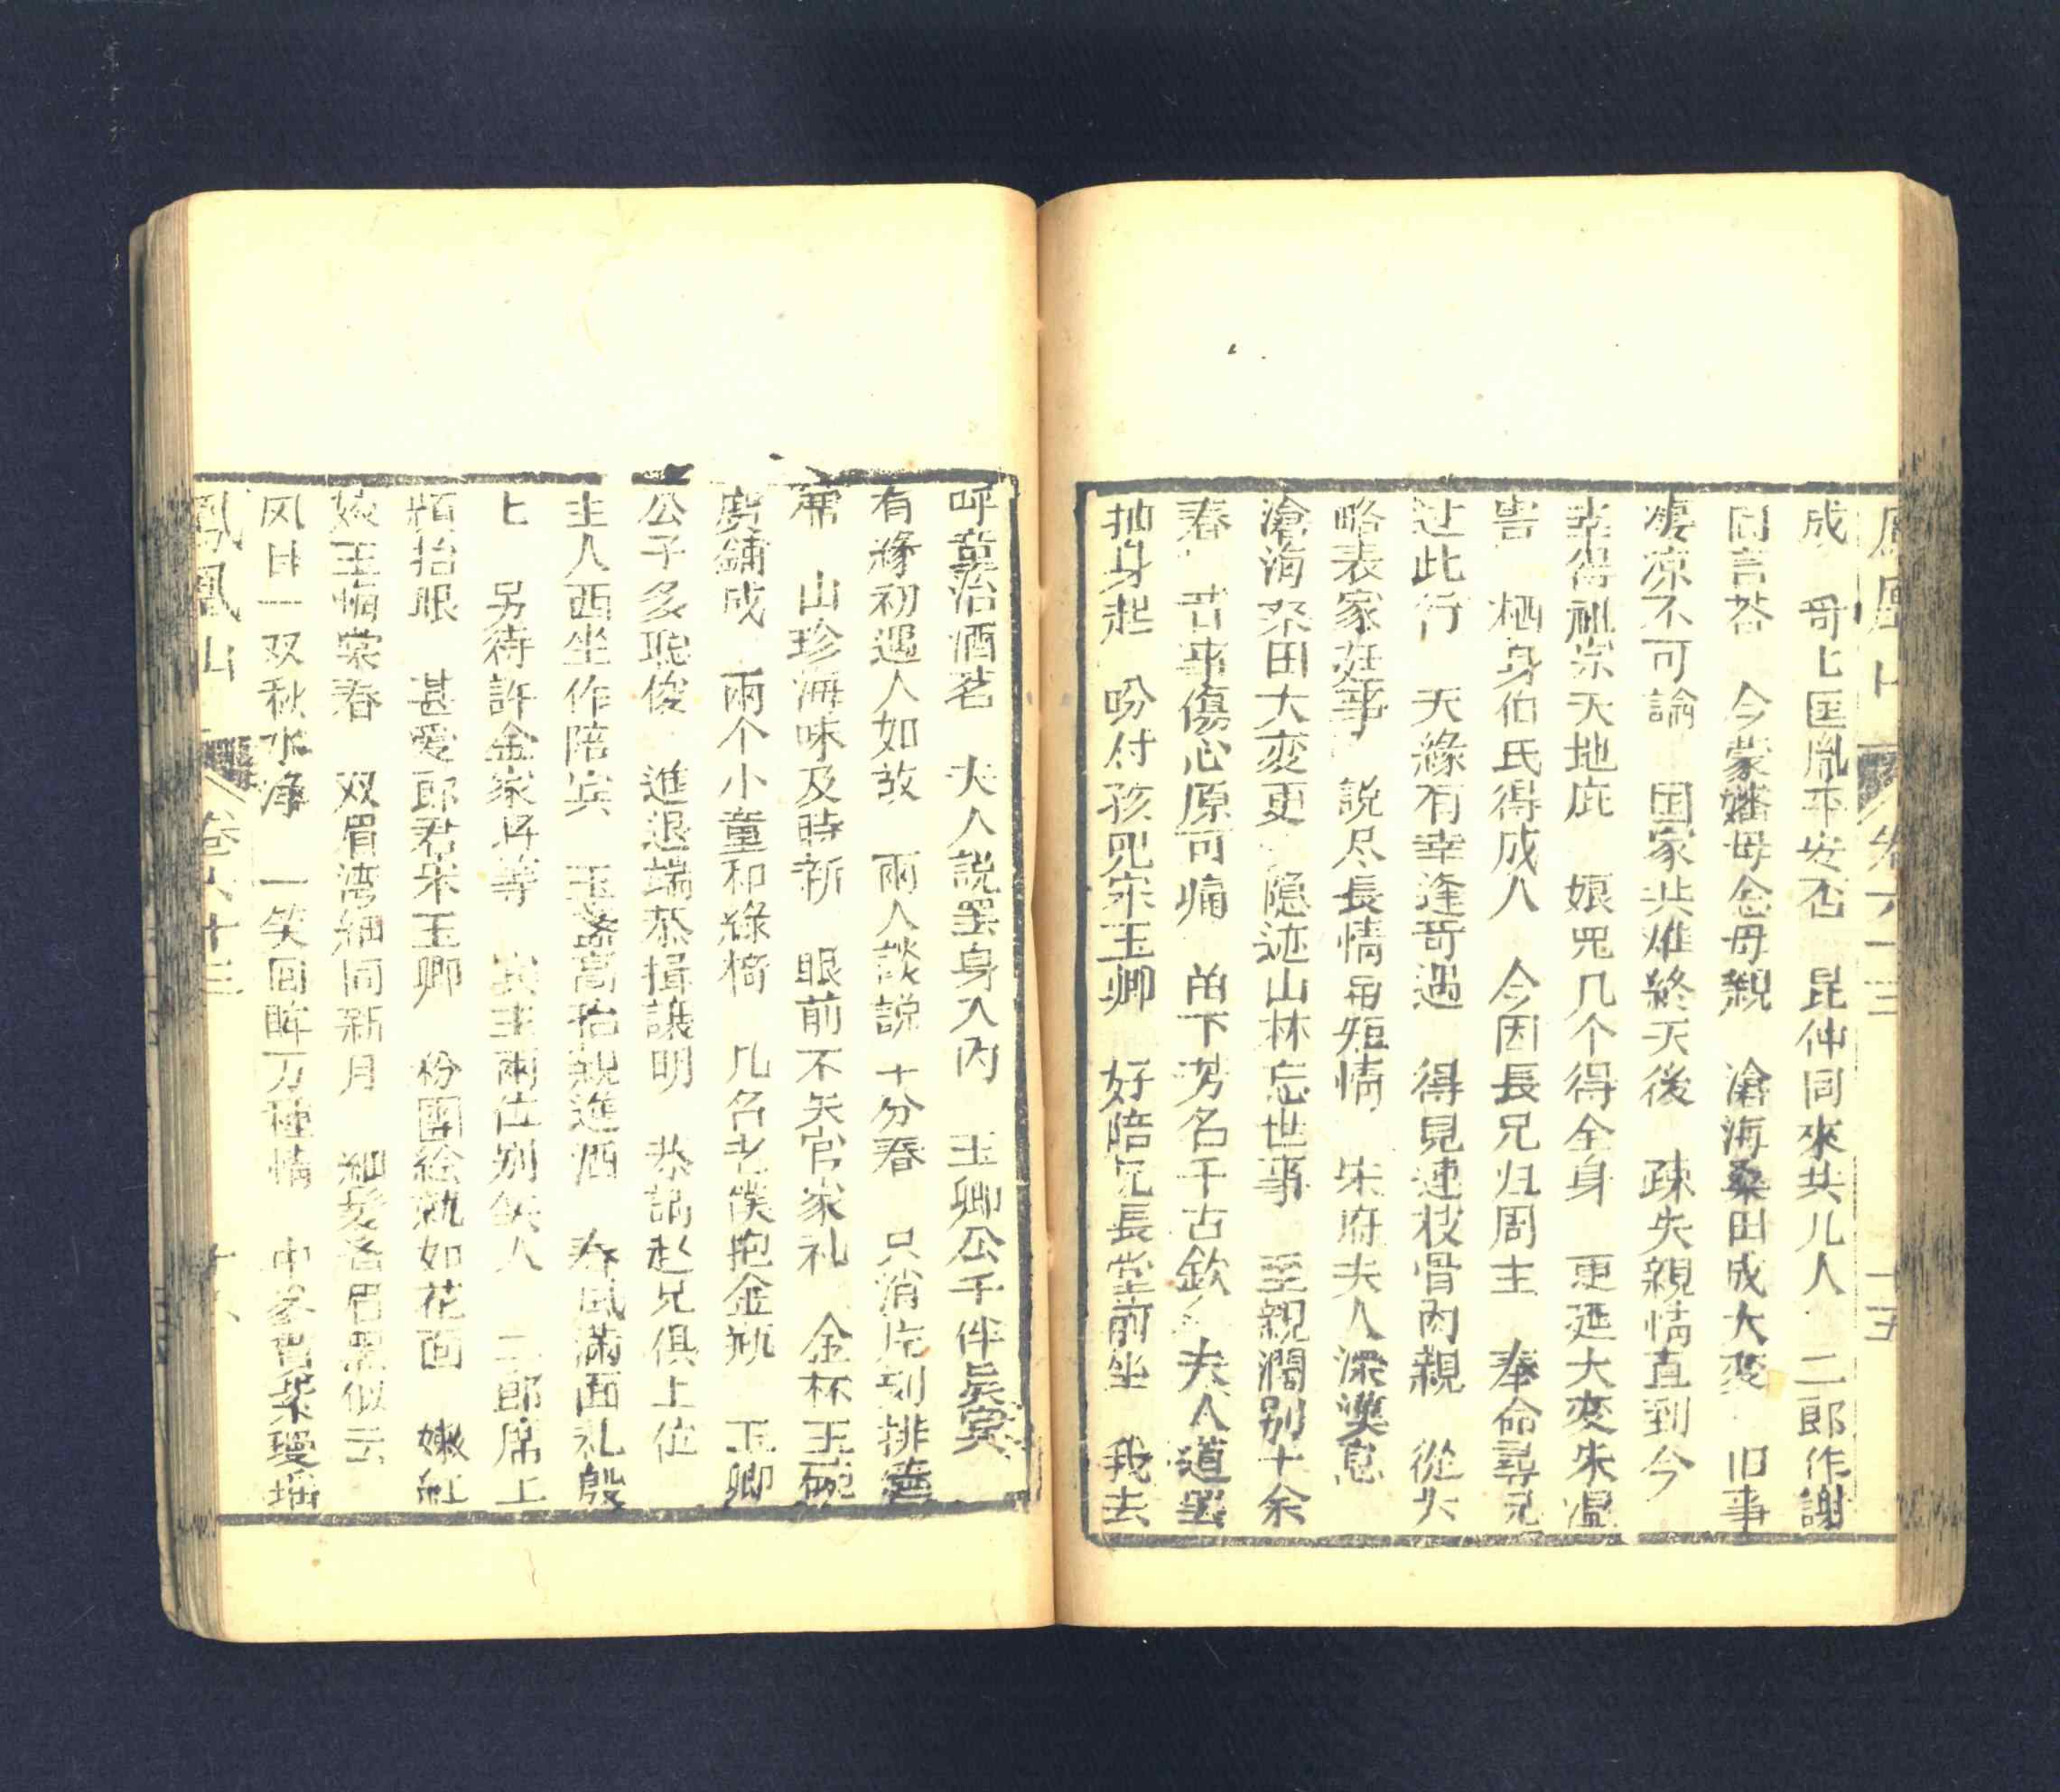 鳳凰山 卷六十三 十五
成 哥匕国胤平安否 昆仲同來共几人 二郎作謝
回言荅 今蒙嬸母念母親 滄海桑田成大変 旧事
凄凉不可論 国家共难終天後 疎失親情直到今
幸得祖宗天地庇 娘兕几个得全身 更延大変朱温
害 栖身伯氏得成人 今因長兄归周主 奉命尋兄
过此行 天緣有幸逢奇遇 得見連枝骨肉親 從头
略表家廷事 說尽長情用短情 宋府夫人深漢息
滄海桑田大変更 隐迹山林忘世事 至親濶别十余
春 昔事傷心原可痛 留下芳名千古欽 夫人道罢
抽身起 吩付孩兕宋玉卿 好陪兄長堂前坐 我去
呼童治酒茗 夫人說罢身入內 玉卿公子伴嘉宾
有緣初遇人如故 兩人談說十分春 只消片刻排筵
席 山珍海味及時新 眼前不失官家礼 金杯玉碗
鋪成 兩个小童和綠椅 几名老僕抱金瓶 玉卿
公子多聪俊 進退端恭揖讓明 恭請赵兄俱上位
主人西坐作陪宾 玉盞高抬親進酒 春風滿面礼殷
匕 另待許金家丹等 宾主兩位别无人 二郎席上
頻抬眼 甚愛郎君宋玉卿 粉團絵就如花面 嫩紅
双眉湾細同新月
凤目一双秋水净 一笑回眸万種情
鳳凰山 卷六十三 十六